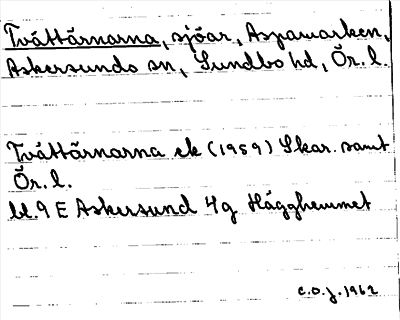 Tvättärnarna, sjöar, Aspamarken,
Askersunds sn, Sundbo hd, Ör. l.
Tvättärnarna ek (1959) Skar. samt
Ör. l.
bl. 9 E Askersund 4g Hägghemmet
C.O.J. 1962